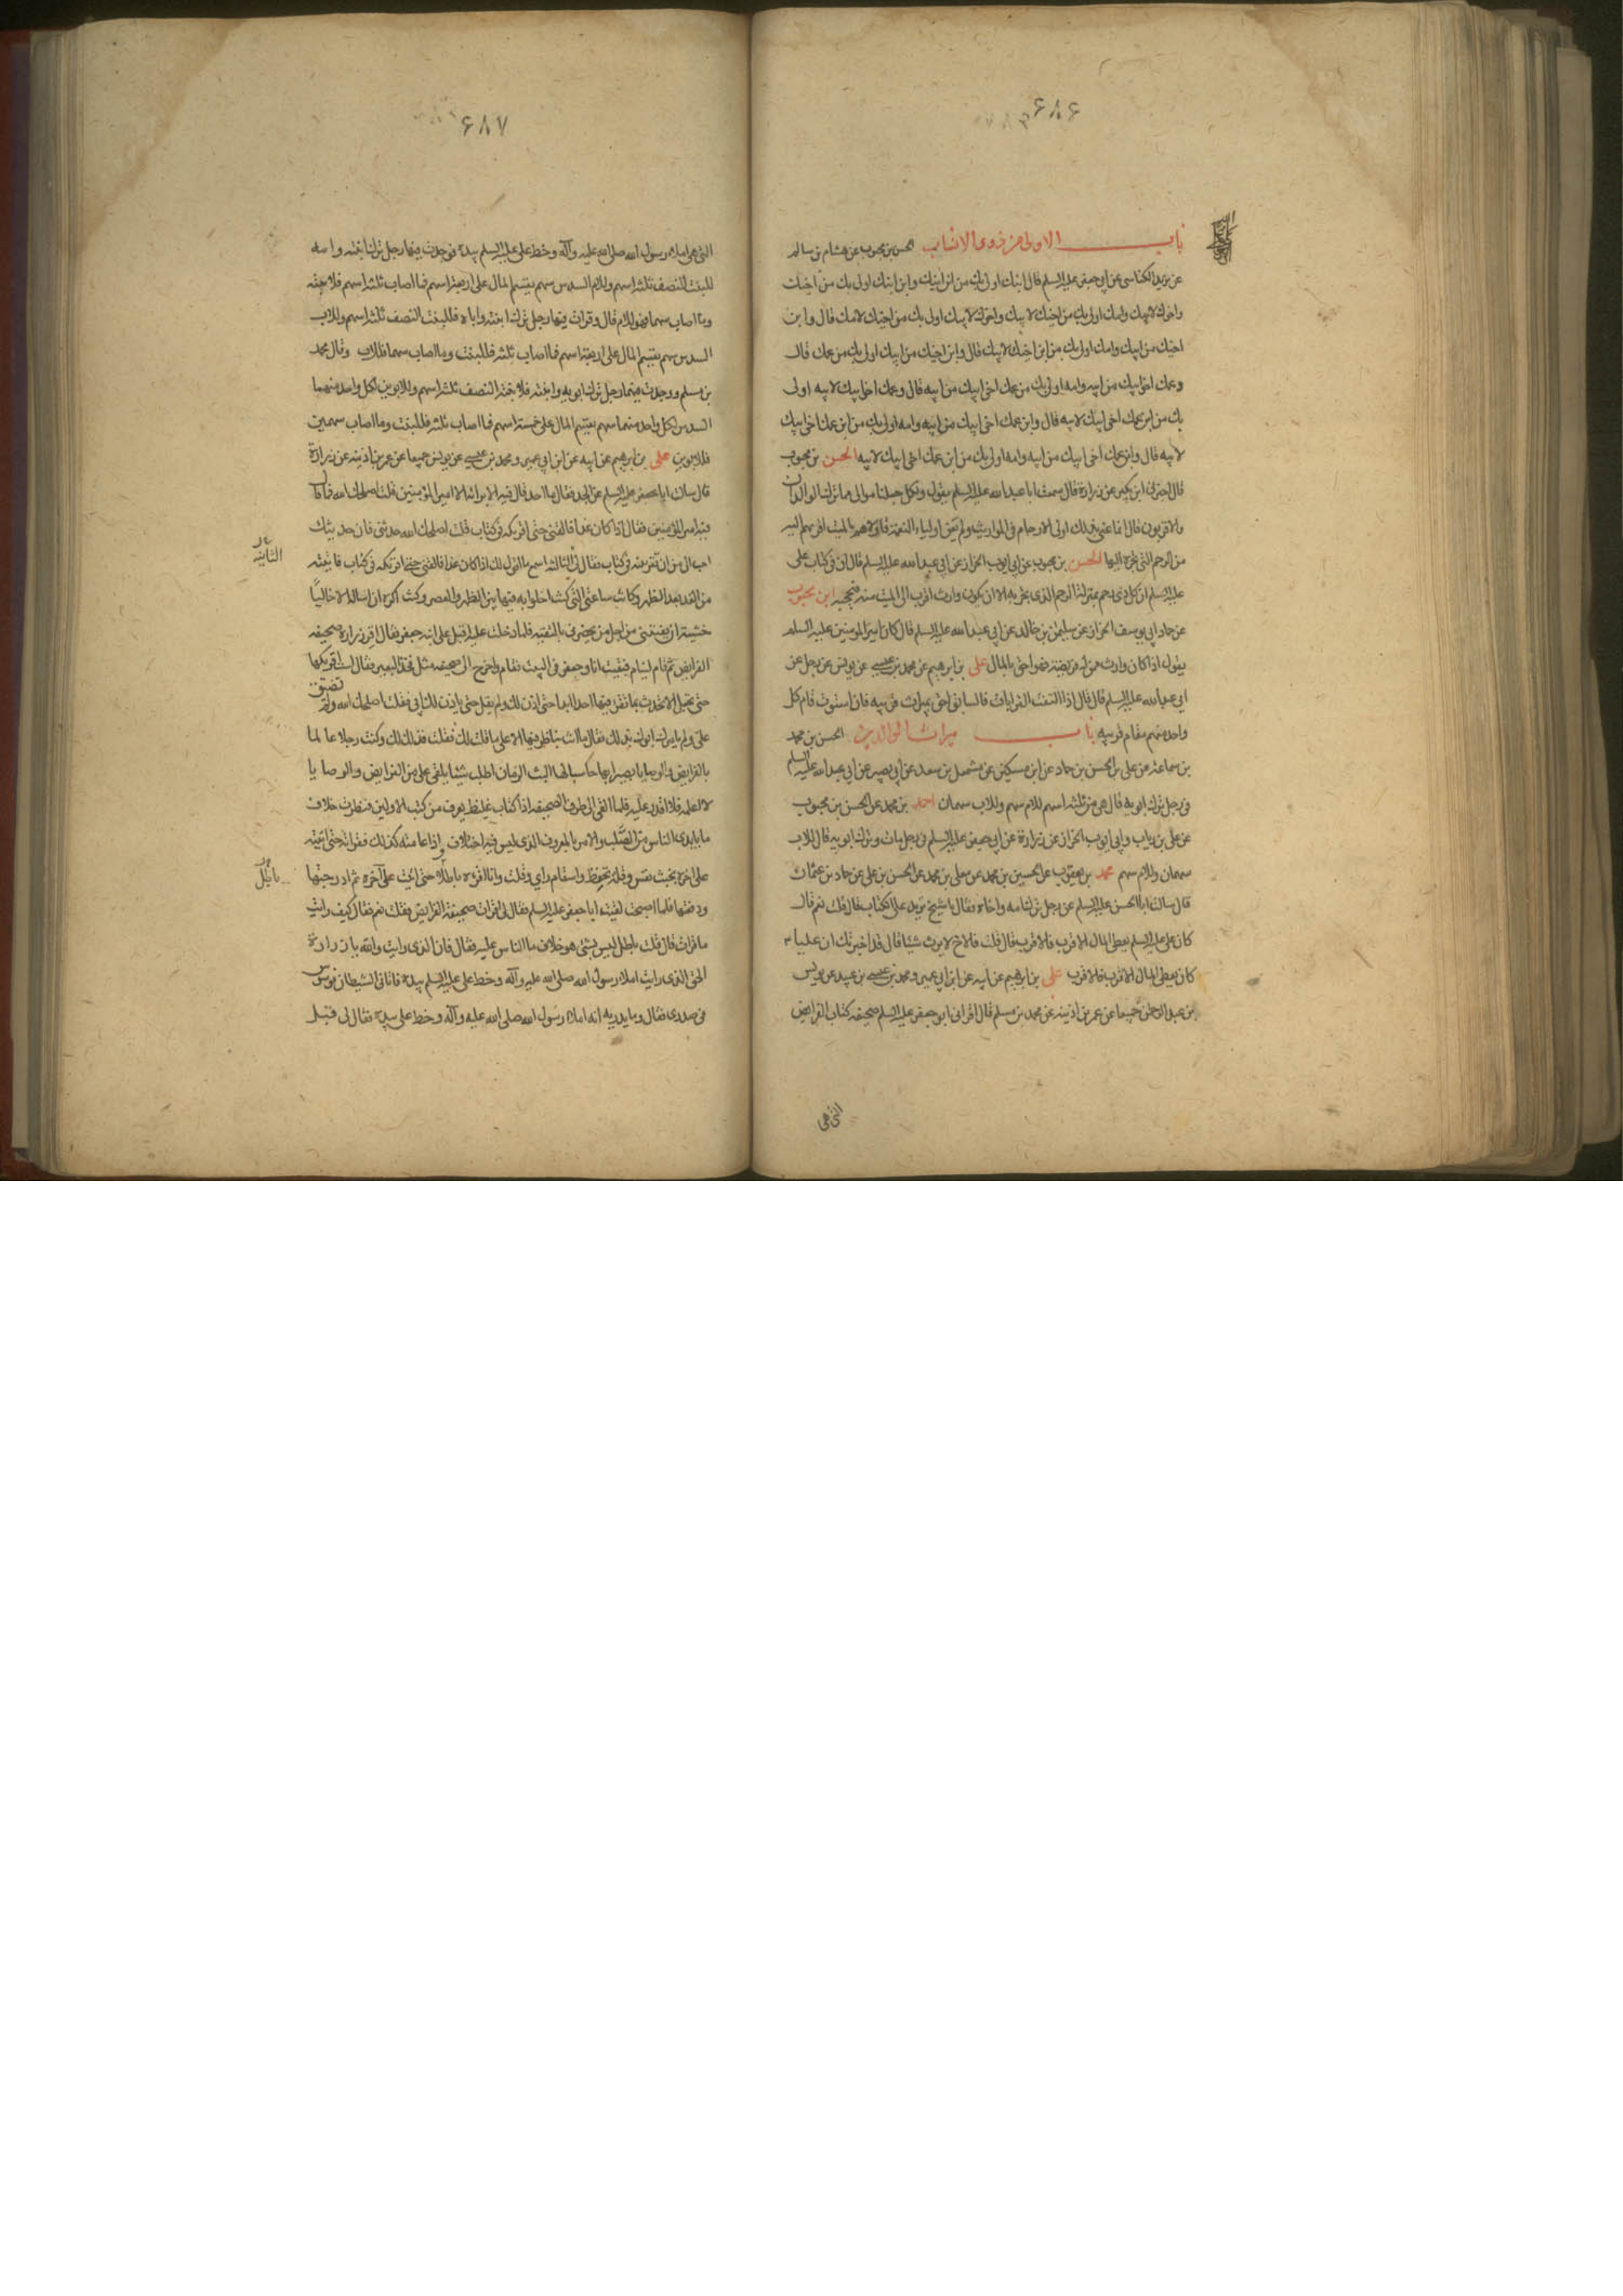 ۶۸۶
باب الاولى من ذوى الانساب الحسن بن محبوب عن هشام بن سالم
عن يزيد الكناسى عن ابى جعفر عليه السلم قال ابنك اولى بك من ابن ابنك وابن ابنك اولى بك من اخيك
واخوك لابيك وامك اولى بك من اخيك لابيك واخوك لابيك اولى بك من اخيك لامك قال وابن
اخيك من ابيك وامك اولى بك من ابن اخيك لابيك قال وابن اخيك من ابيك اولى بك من عمك قال
وعمك اخى ابيك من ابيه وامه اولى بك من عمك اخى ابيك من ابيه قال وعمك اخى ابيك لابيه اولى
بك من ابن عمك اخى ابيك لابيه قال وابن عمك اخى ابيك من ابيه وامه اولى بك من ابن عمك اخى ابيك
لابيه قال وابن عمك اخى ابيك من ابيه وامه اولى بك من ابن عمك اخى ابيك لابيه الحسن بن محبوب
قال اخبرنى ابن بكير عن زرارة قال سمعت ابا عبد الله عليه السلم يقول ولكل جعلنا موالى مما ترك الوالدان
والاقربون قال انما عنى بذلك اولى الارحام فى المواريث ولم يعن اولياء النعمة فاولاهم بالميت اقربهم اليه
من الرحم التى تجره اليها الحسن بن محبوب عن ابى ايوب الخزاز عن ابى عبد الله عليه السلم قال ان فى كتاب على
عليه السلم ان كل ذى رحم بمنزلة الرحم الذى يجر به الا ان يكون وارث اقرب الى الميت منه فيحجبه ابن محبوب
عن حماد ابى يوسف الخزاز عن سليمن بن خالد عن ابى عبد الله عليه السلم قال كان امير المومنين عليه السلم
يقول اذا كان وارث ممن له فريضة فهو احق بالمال على بن ابرهيم عن محمد بن عيسى عن يونس عن رجل عن
ابى عبد الله عليه السلم قال قال اذا التفت القرابات فالسابق احق بميراث قريبه فان استوت قام كل
واحد منهم مقام قريبه باب ميراث الوالدين الحسن بن محمد
بن سماعة عن على بن الحسن بن حماد عن ابن مسكين عن مشمعل بن سعد عن ابى بصير عن ابى عبد الله عليه السلم
فى رجل ترك ابويه قال هى من ثلثه اسهم للام سهم وللاب سهمان احمد بن محمد عن الحسن بن محبوب
عن على بن رياب وابى ايوب الخزاز عن زرارة عن ابى جعفر عليه السلم فى رجل مات وترك ابويه قال للاب
سهمان وللام سهم محمد بن يعقوب عن الحسين بن محمد عن معلى بن محمد عن الحسن بن على عن حماد بن عثمان
قال سالت ابا الحسن عليه السلم عن رجل ترك امه واخاه فقال يا شيخ تريد على الكتاب قال قلت نعم قال
كان على عليه السلم يعطى المال الاقرب فالاقرب قال قلت فالاخ لا يرث شيئا قال قد اخبرتك ان عليا
كان يعطى المال الاقرب فالاقرب على بن ابرهيم عن ابيه عن ابن ابى عمير ومحمد بن عيسى بن عبيد عن يونس
بن عبد الرحمن جميعا عن عمر بن اذينه عن محمد بن مسلم قال اقرانى ابو جعفر عليه السلم صحيفه كتاب الفرايض
التى هى
۶۸۷
التى هى املاء رسول الله صلى الله عليه وآله وخط على عليه السلم بيده فوجدت فيها رجل ترك ابنته وامه
للبنت النصف ثلثه اسهم وللام السدس سهم يقسم المال على اربعة اسهم فما اصاب ثلثه اسهم فلابنته
وما اصاب سهما فهو للام قال وقرات فيها رجل ترك ابنته واباه فللبنت النصف ثلثه اسهم وللاب
السدس سهم يقسم المال على اربعة اسهم فما اصاب ثلثه فللبنت وما اصاب سهما فللاب وقال محمد
بن مسلم ووجدت فيها رجل ترك ابويه وابنته فلابنته النصف ثلثه اسهم وللابوين لكل واحد منهما
السدس لكل واحد منهما سهم يقسم المال على خمسة اسهم فما اصاب ثلثه فللبنت وما اصاب سهمين
فللابوين على بن ابرهيم عن ابيه عن ابن ابى عمير ومحمد بن عيسى عن يونس جميعا عن عمر بن اذينه عن زرارة
قال سالت ابا جعفر عليه السلم عن الجد فقال ما احد قال فيه الا برائه الا امير المؤمنين قلت اصلحك الله فما قال
فيه امير المؤمنين فقال اذا كان غدا فالقنى حتى اقريكه فى كتاب قلت اصلحك الله حدثنى فان حديثك
احب الى من ان تقرينه فى كتاب فقال لى الثانيه اسمع ما اقول لك اذا كان غدا فالقنى حتى اقريكه فى كتاب فاتيته
من الغد بعد الظهر وكانت ساعتى التى كنت اخلوا به فيها بين الظهر والعصر وكنت اكره ان اساله الا خاليا
خشية ان يفتينى من اجل من يحضرنى بالتقيه فلما دخلت عليه اقبل على ابنه جعفر فقال اقر زرارة صحيفه
الفرايض ثم قام لينام فبقيت انا وجعفر فى البيت فقام واخرج الى صحيفه مثل فخذ البعير فقال لست اقريكها
حتى تجعل الله ان لا تحدث بما تقرء فيها احدا ابدا حتى آذن لك ولم يقل حتى ياذن لك ابى فقلت اصلحك الله ولم تضيق
على ولم يامرك ابوك بذلك فقال ما انت بناظر فيها الا على ما قلت لك فقلت فذلك لك وكنت رجلا عالما
بالفرايض والوصايا بصيرا بها حاسبا لها البث الزمان اطلب شيئا يلقى على من الفرايض والوصايا
لا اعلمه فلا اقدر عليه فلما القى الى طرف الصحيفه اذا كتاب غليظ يعرف من كتب الاولين فنظرت خلاف
ما بايدى الناس من الصلب والامر بالمعروف الذى ليس فيه اختلاف واذا عامته كذلك فقراته حتى اتيت
على اخره بخبث نفس وقلة تحفظ واسقام راى وقلت وانا اقره باطلا حتى اتيت على آخره ثم ادرجتها
ودفعتها فلما اصبحت لقيت ابا جعفر عليه السلم فقال لى اقرات صحيفة الفرايض فقلت نعم فقال كيف رايت
ما قرات قال قلت باطل ليس بشئ هو خلاف ما الناس عليه فقال فان الذى رايت والله يا زرارة
الحق الذى رايت املاء رسول الله صلى الله عليه وآله وخط على عليه السلم بيده فاتانى الشيطان فوسوس
فى صدرى فقال وما يدريه انه املاء رسول الله صلى الله عليه وآله وخط على بيده فقال لى قبل
الثانيه
باطل